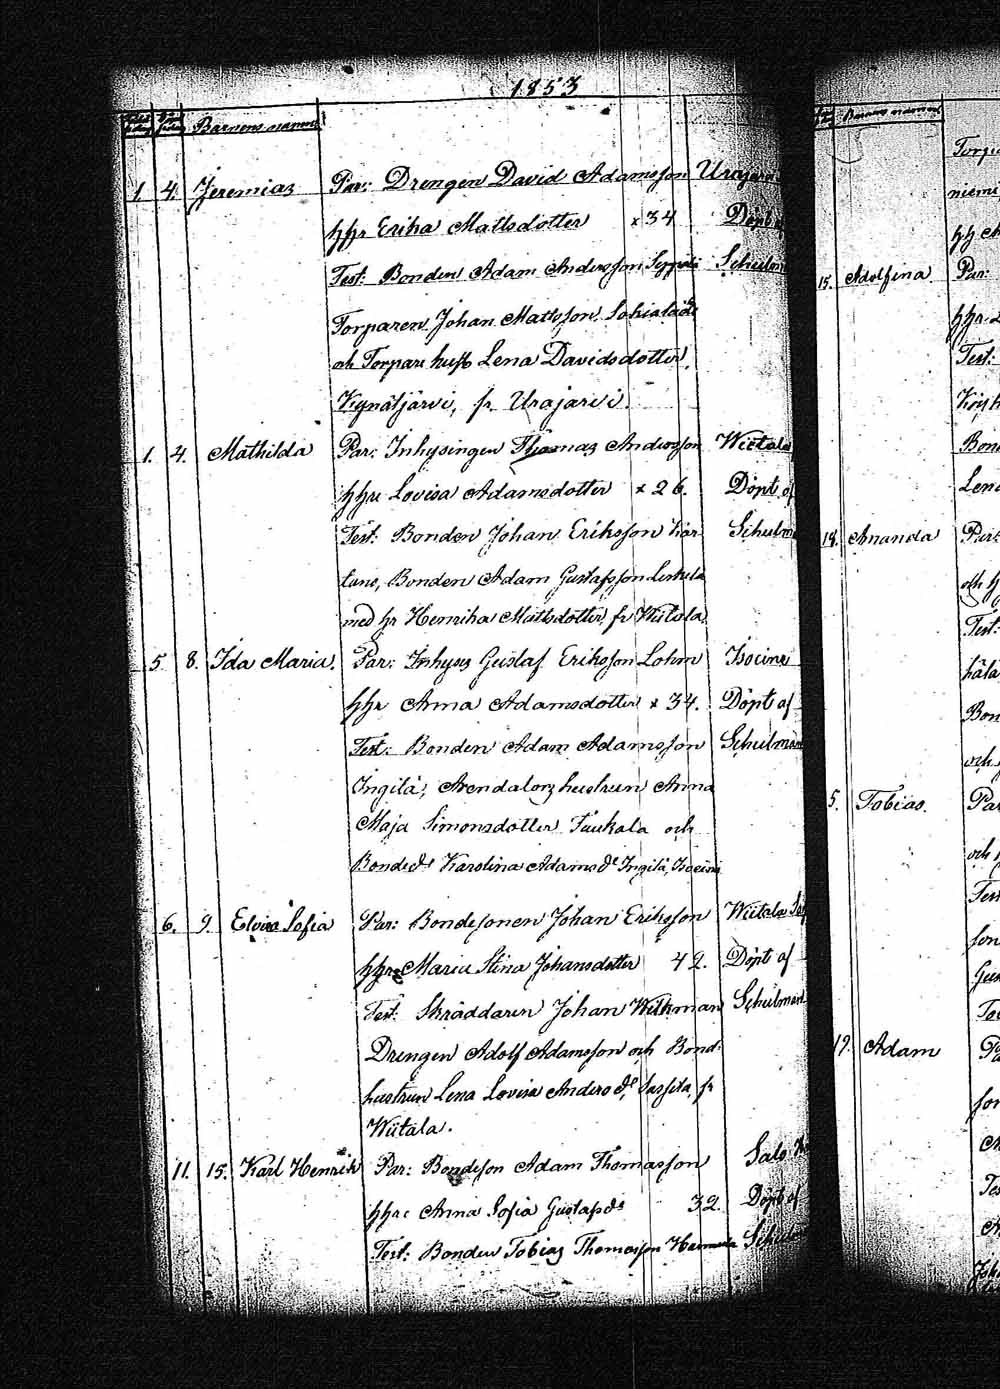 1853
Barnens namn
1. 4. Jeremias Par: Drengen David Adamsson Urajärvi
hhr Erika Mattsdotter x 34 Döpt af
Test: Bonden Adam Andersson Seppälä Schulman
Torparen Johan Mattsson
och Torpare hust Lena Davidsdotter,
Kynäsjärvi, fr Urajärvi.
1. 4. Mathilda Par: Inhysingen Thomas Andersson Wiitala
hhru Lovisa Adamsdotter x 26. Döpt af
Test: Bonden Johan Eriksson Kar Schulm
tano, Bonden Adam Gustafsson
med hr Henrika Mattsdotter, fr Wiitala.
5 8. Ida Maria. Par: Inhysg Gustaf Eriksson Lohm
hhr Anna Adamsdotter x 34. Döpt af
Test: Bonden Adam Adamsson Schulman
Ingilä, Arendatorshustrun Anna
Maja Simonsdotter Taukala och
Karolina Adams dr Ingilä,
6. 9. Elvira Sofia Par: Bondesonen Johan Eriksson Wiitala
hhr Maria Stina Johansdotter 42. Döpt af
Test: Skräddaren Johan Wilkman Schulman
Drengen Adolf Adamsson och Bond-
hustrun Lena Lovisa Anders dr, fr
Wiitala.
11. 15. Karl Henrik Par: Bondeson Adam Thomasson Salo
hhru Anna Sofia Gustafsdr 32. Döpt af
Test: Bonden Tobias Thomasson
Barnens namn
niemi
15. Adolfina Par:
hhr
Test:
Bon
Lena
18. Amanda Par:
och h
Test:
Bon
och
5. Tobias. Par
och
Test
Gus
19. Adam Pa
Te